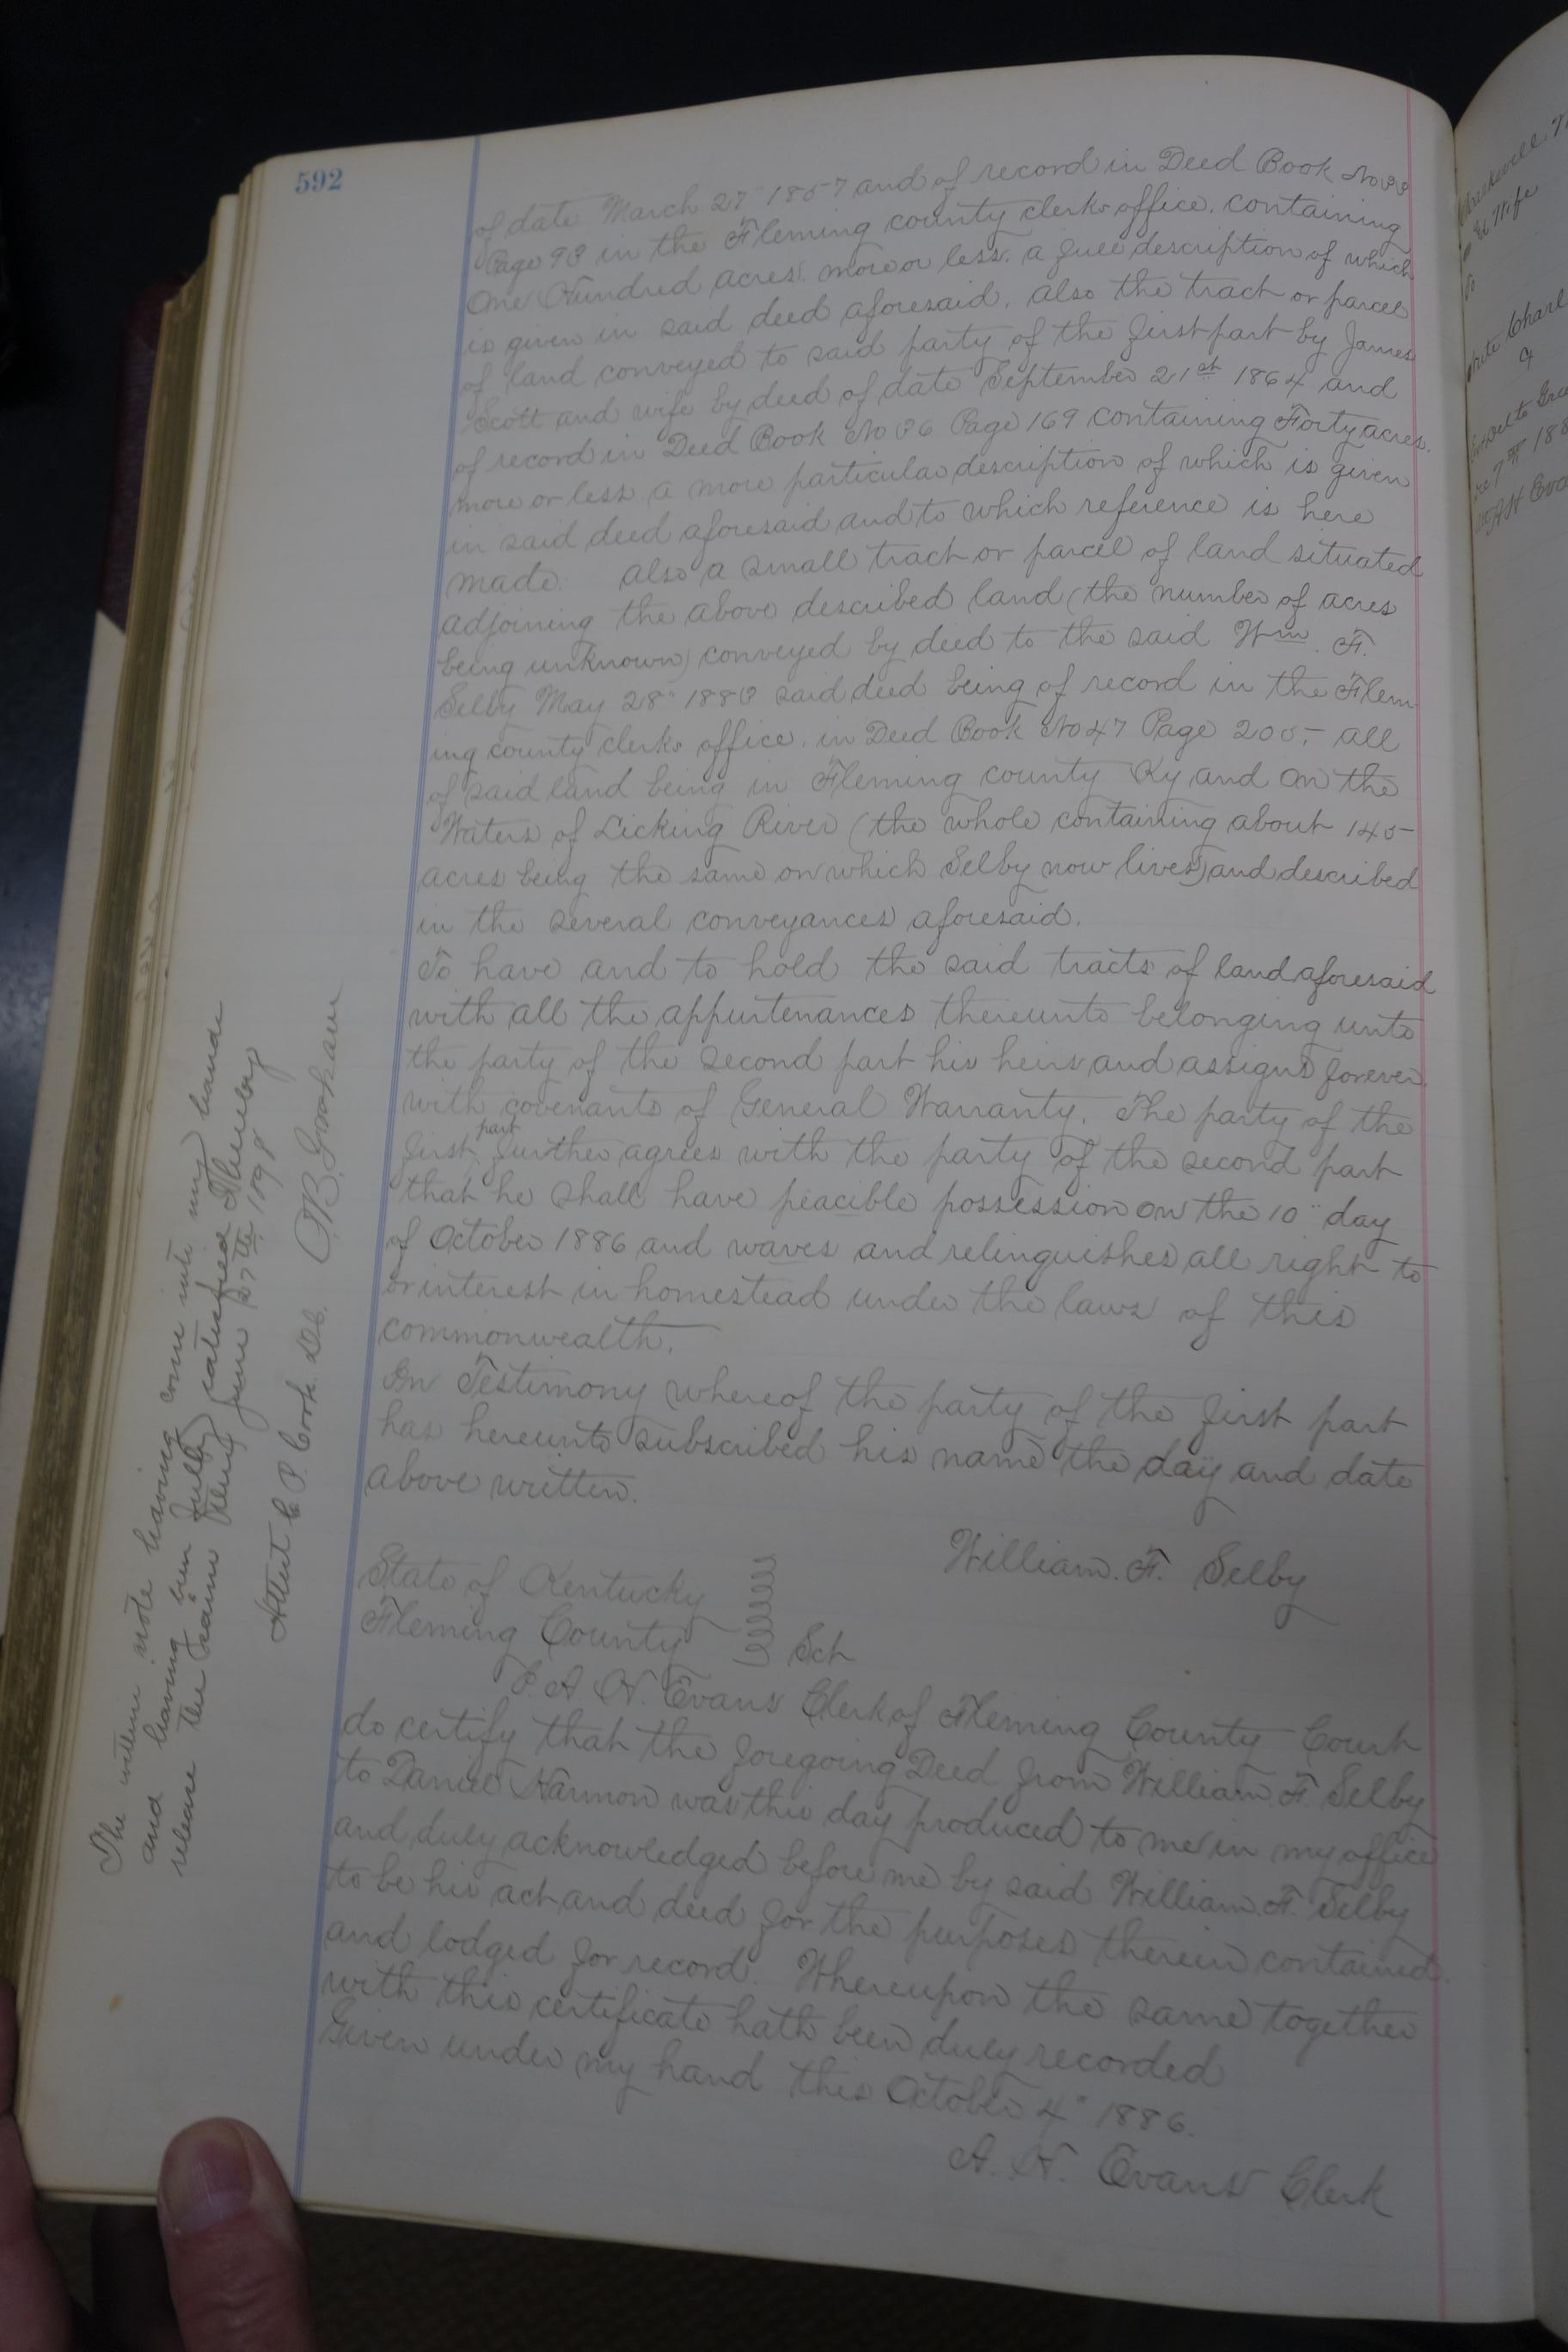 592
of date March 27" 1857 and of record in Deed Book No 33
Page 93 in the Fleming county clerks office. containing
One Hundred acres. more or less. a full description of which
is given in said deed aforesaid. also the tract or parcel
of land conveyed to said party of the first part by James
Scott and wife by deed of date September 21st 1864 and
of record in Deed Book No 36 Page 169 containing Forty acres.
more or less a more particular description of which is given
in said deed aforesaid and to which reference is here
made. also a small tract or parcel of land situated
adjoining the above described land (the number of acres
being unknown) conveyed by deed to the said Wm. F.
Selby May 28" 1883 said deed being of record in the Flem
ing county clerks office. in Deed Book No 47 Page 205- all
of said land being in Fleming county Ky and on the
Waters of Licking River (the whole containing about 145
acres being the same on which Selby now lives) and described
in the several conveyances aforesaid.
To have and to hold the said tracts of land aforesaid
with all the appurtenances thereunto belonging unto
the party of the second part his heirs and assigns forever.
with covenants of General Warranty. The party of the
first part further agrees with the party of the second part
that he shall have peacible possession on the 10" day
of October 1886 and waves and relinquishes all right to
or interest in homestead under the laws of this
commonwealth.
In Testimony whereof the party of the first part
has hereunto subscribed his name the day and date
above written.
William. F. Selby
State of Kentucky
Fleming County Sct
I. A. H. Evans Clerk of Fleming County Court
do certify that the foregoing Deed from William F. Selby
to Daniel Harmon was this day produced to me in my office
and duly acknowledged before me by said William. F. Selby
to be his act and deed for the purposes therein contained.
and lodged for record. Whereupon the same together
with this certificate hath been duly recorded
Given under my hand this October 4" 1886.
A. H. Evans Clerk
The within note having come into my hands
and having been fully satisfied I hereby
release the same lien June 27th 1898
Attest C. P. Cook D.C.
& Wife
Vs